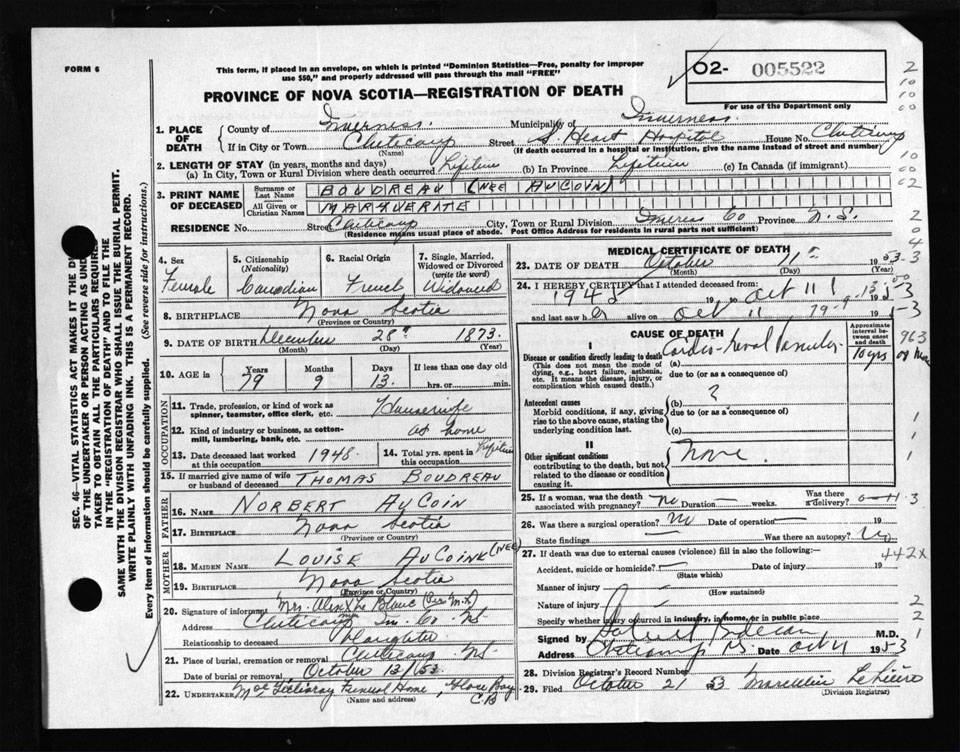 FORM 6
This form, if placed in an envelope, on which is printed "Dominion Statistics—Free, penalty for improper
use $50," and properly addressed will pass through the mail "FREE"
O2- 005522
For use of the Department only
PROVINCE OF NOVA SCOTIA—REGISTRATION OF DEATH
1. PLACE OF DEATH
County of Inverness. Municipality of Inverness.
If in City or Town Cheticamp (Name) Street S. Heart Hospital House No. Cheticamp
(If death occurred in a hospital or institution, give the name instead of street and number)
2. LENGTH OF STAY (in years, months and days)
(a) In City, Town or Rural Division where death occurred Lifetime (b) In Province Lifetime (c) In Canada (if immigrant)
3. PRINT NAME OF DECEASED
Surname or Last Name BOUDREAU (NEE AUCOIN)
All Given or Christian Names MARQUERITE
RESIDENCE No. Street Cheticamp City, Town or Rural Division Inverness Co Province N.S.
(Residence means usual place of abode. Post Office Address for residents in rural parts not sufficient)
4. Sex Female
5. Citizenship (Nationality) Canadian
6. Racial Origin French
7. Single, Married, Widowed or Divorced (write the word) Widowed
8. BIRTHPLACE Nova Scotia
(Province or Country)
9. DATE OF BIRTH December 28th 1873.
(Month) (Day) (Year)
10. AGE Years 79 Months 9 Days 13. If less than one day old
hrs. or min.
OCCUPATION
11. Trade, profession, or kind of work as spinner, teamster, office clerk, etc. Housewife
12. Kind of industry or business, as cotton-mill, lumbering, bank, etc. at home
13. Date deceased last worked at this occupation 1948.
14. Total yrs. spent in this occupation Lifetime
15. If married give name of wife or husband of deceased THOMAS BOUDREAU
FATHER
16. NAME NORBERT AUCOIN
17. BIRTHPLACE Nova Scotia
(Province or Country)
MOTHER
18. MAIDEN NAME LOUISE AUCOIN (NEE)
19. BIRTHPLACE Nova Scotia
(Province or Country)
20. Signature of informant Mrs. Alex Le Blanc
Address Cheticamp Inv. Co NS
Relationship to deceased Daughter
21. Place of burial, cremation or removal Cheticamp NS.
Date of burial or removal October 13/53
22. UNDERTAKER Funeral Home, Glace Bay C.B
(Name and address)
MEDICAL CERTIFICATE OF DEATH
23. DATE OF DEATH October 11th 1953
(Month) (Day) (Year)
24. I HEREBY CERTIFY that I attended deceased from:
1948 19 to oct 11 1953
and last saw her alive on oct 11 1953
CAUSE OF DEATH
Approximate interval between onset and death
I
Disease or condition directly leading to death (a) Cardio-renal 10 yrs
(This does not mean the mode of dying, e.g., heart failure, asthenia, etc. It means the disease, injury, or complication which caused death.)
due to (or as a consequence of)
Antecedent causes (b) ?
Morbid conditions, if any, giving rise to the above cause, stating the underlying condition last.
due to (or as a consequence of)
(c)
II
Other significant conditions contributing to the death, but not related to the disease or condition causing it. None.
25. If a woman, was the death associated with pregnancy? no Duration weeks. Was there a delivery?
26. Was there a surgical operation? no Date of operation 19
State findings Was there an autopsy? no
27. If death was due to external causes (violence) fill in also the following:
Accident, suicide or homicide? Date of injury 19
(State which)
Manner of injury
(How sustained)
Nature of injury
Specify whether injury occurred in industry, in home, or in public place
Signed by M.D.
Address Cheticamp N.S. Date Oct 11 1953
28. Division Registrar's Record Number
29. Filed October 21 53
(Division Registrar)
963
442x
SEC. 46—VITAL STATISTICS ACT MAKES IT THE
OF THE UNDERTAKER OR PERSON ACTING AS
TAKER TO OBTAIN ALL THE PARTICULARS
IN THE "REGISTRATION OF DEATH" AND TO FILE THE
SAME WITH THE DIVISION REGISTRAR WHO SHALL ISSUE THE BURIAL PERMIT.
WRITE PLAINLY WITH UNFADING INK. THIS IS A PERMANENT RECORD.
Every item of information should be carefully supplied. (See reverse side for instructions.)